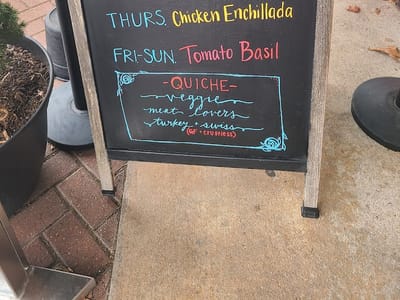 THURS. Chicken Enchillada
FRI-SUN. Tomato Basil
-QUICHE-
veggie
meat lovers
turkey + swiss
(GF + crustless)